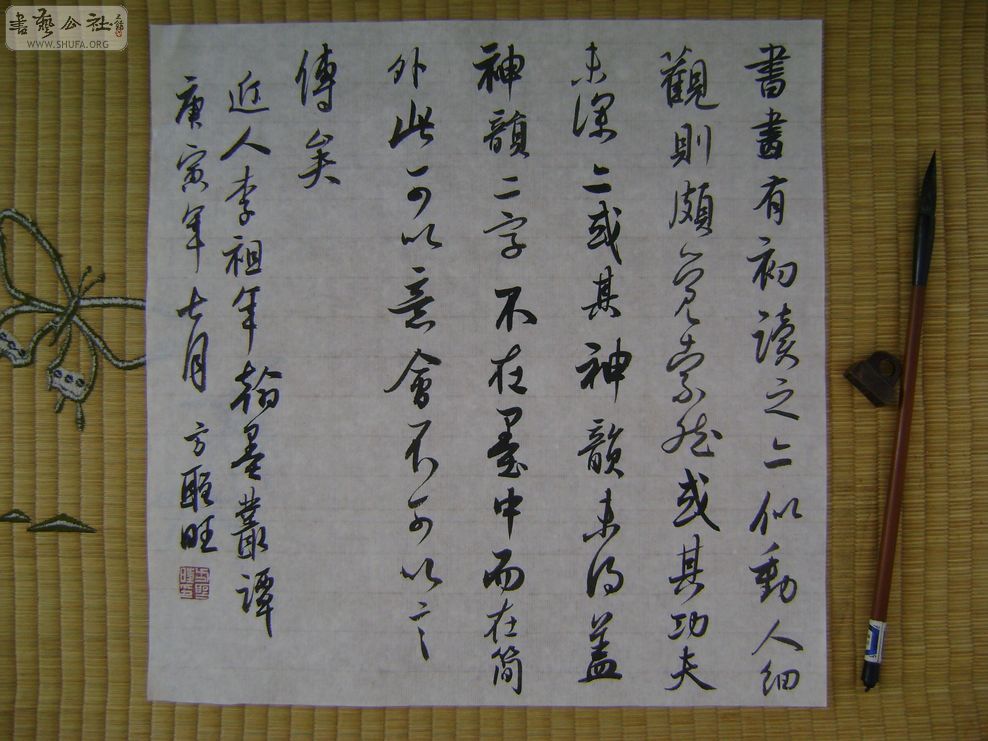 書藝公社
WWW.SHUFA.ORG
書畫有初讀之亦似動人細
觀則頗覺索然或其功夫
未深亦或其神韻未得蓋
神韻二字不在墨中而在简
外此可以意會不可以言
傳矣
近人李祖年翰墨叢譚
庚寅年七月 方旺